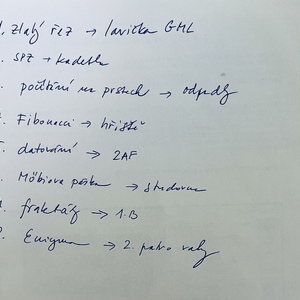 1. zlatý řez → lavička GML
. SPZ → kadeřka
. počítání na prstech → odpadly
. Fibonacci → hřiště
. datování → 2AF
. Möbiova páska → studovna
. fraktály → 1.B
. Enigma → 2. patro